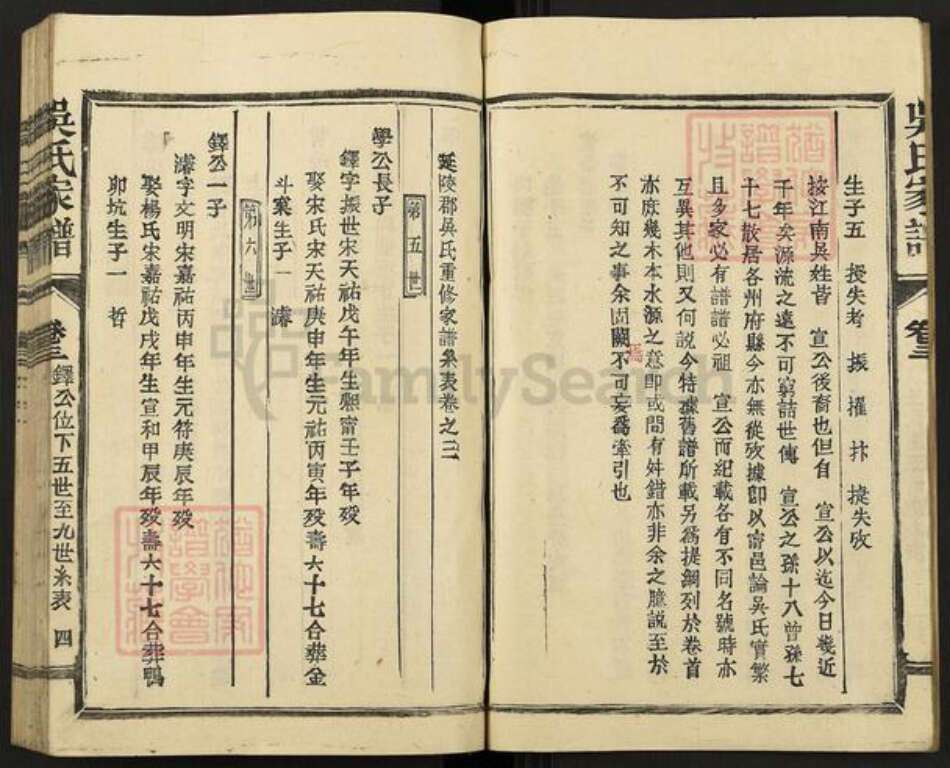 生子五 授失考 振 擢 抃 㨗失攷
按江南吳姓皆 宣公後裔也但自 宣公以迄今日幾近
千年矣源流之遠不可窮詰世傳 宣公之孫十八曾孫七
十七散居各州府縣今亦無從攷據卽以甯邑論吳氏實繁
且多家必有譜譜必祖 宣公而紀載各有不同名號時亦
互異其他則又何說今特據舊譜所載另爲提綱列於卷首
亦庶幾木本水源之意卽或間有舛錯亦非余之臆說至於
不可知之事余固闕焉不可妄爲牽引也
吳氏家譜 卷三
延陵郡吳氏重修家譜系表卷之三
第五世
學公長子
鐸字振世宋天祐戊午年生熙甯壬子年歿
娶宋氏宋天祐庚申年生元祐丙寅年歿壽六十七合葬金
斗窠生子一 濬
第六世
鐸公一子
濬字文明宋嘉祐丙申年生元符庚辰年歿
娶楊氏宋嘉祐戊戌年生宣和甲辰年歿壽六十七合葬鴨
卵坑生子一 哲
吳氏家譜 卷三 鐸公位下五世至九世系表 四
FamilySearch